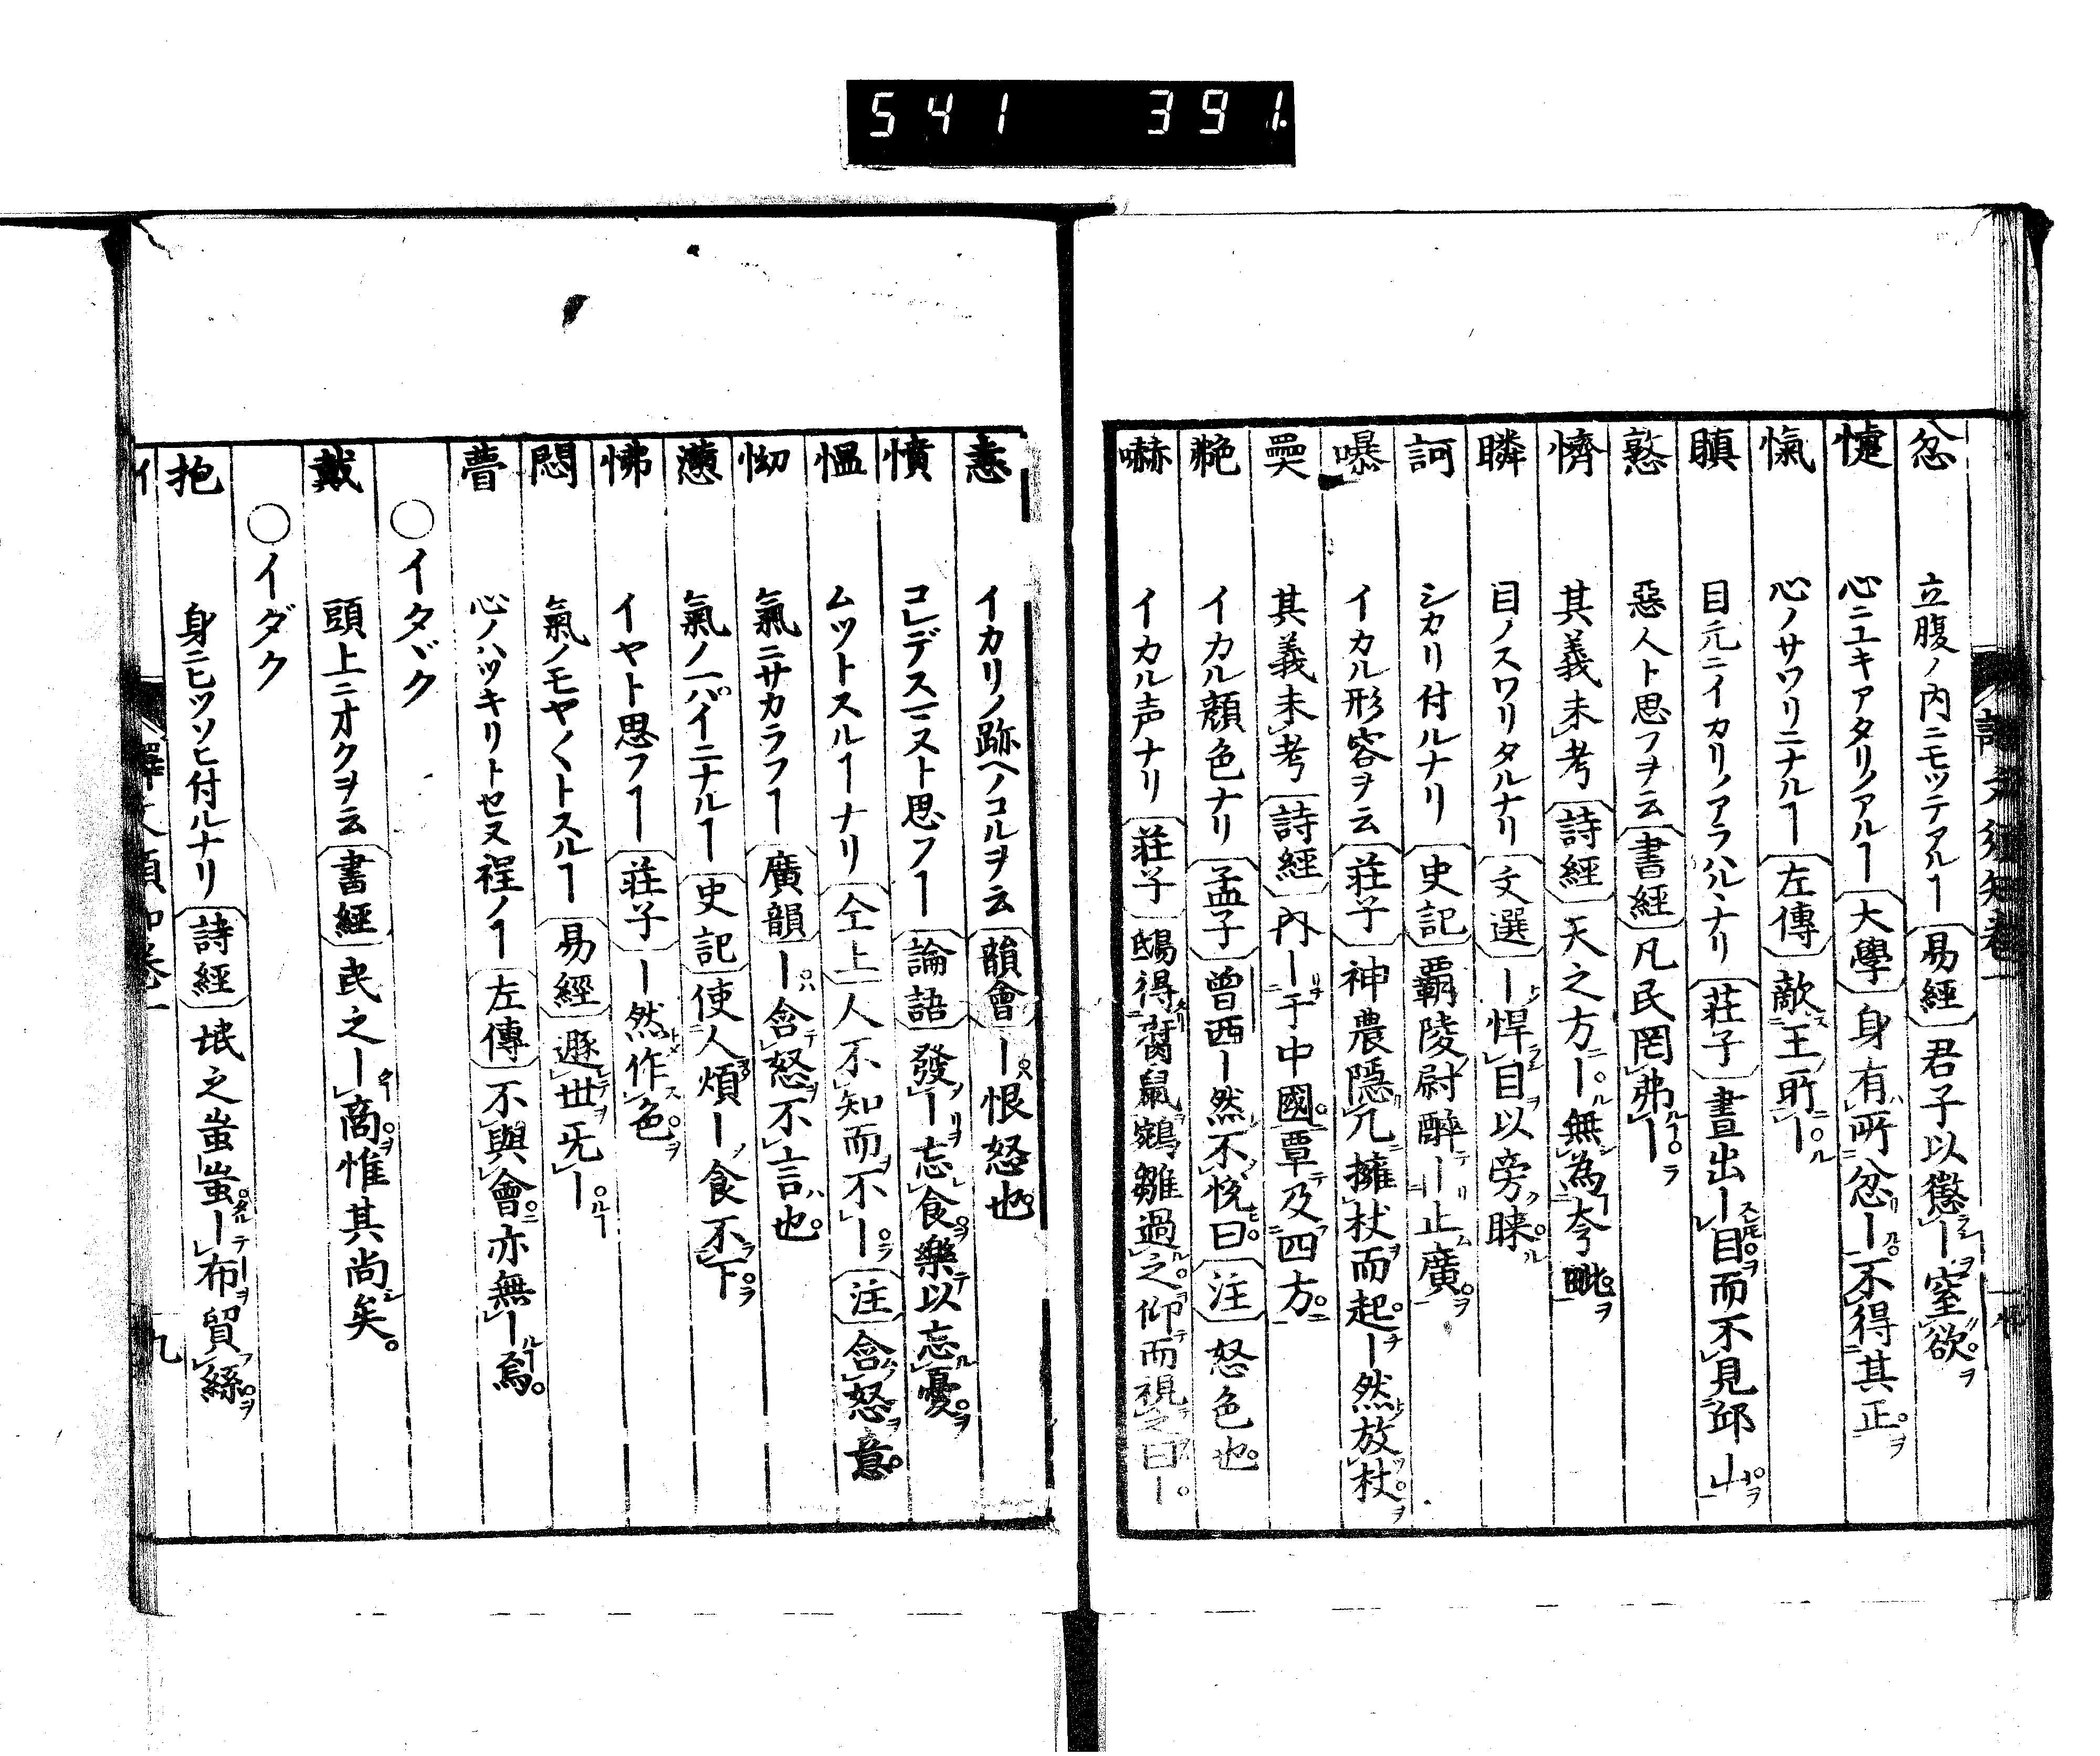 541 391
忿 立腹ノ内ニモツテアルヿ 易經 君子以懲ー窒欲
懥 心ニユキアタリノアルヿ 大學 身有所忿ー不得其正
愾 心ノサワリニナルヿ 左傳 敵王所ー
瞋 目元ニイカリノアラハルヽナリ 莊子 晝出ー目而不見邱山
憝 惡人ト思フヲ云 書經 凡民罔弗ー
懠 其義未考 詩經 天之方ー無為夸毗
瞵 目ノスワリタルナリ 文選 ー悍目以旁睞
訶 シカリ付ルナリ 史記 覇陵尉醉ー止廣
嚗 イカル形容ヲ云 莊子 神農隱几擁杖而起ー然放杖
奰 其義未考 詩經 内ー于中國覃及四方
艴 イカル顔色ナリ 孟子 曾西ー然不悅曰 注 怒色也
嚇 イカル声ナリ 莊子 鴟得腐鼠鵷雛過之仰而視之曰ー
恚 イカリノ跡ヘノコルヲ云 韻會 ー恨怒也
憤 コレデスマヌト思フヿ 論語 發ー忘食樂以忘憂
慍 ムツトスルヿナリ 仝上 人不知而不ー 注 含怒意
怮 氣ニサカラフヿ 廣韻 ー含怒不言也
懣 氣ノ一パイニナルヿ 史記 使人煩ー食不下
怫 イヤト思フヿ 莊子 ー然作色
悶 氣ノモヤ〱トスルヿ 易經 遯世旡ー
瞢 心ノハツキリトセヌ程ノヿ 左傳 不與會亦無ー焉
○イタヾク
戴 頭上ニオクヲ云 書經 民之ー商惟其尚矣
○イダク
抱 身ニヒツソヒ付ルナリ 詩經 氓之蚩蚩ー布貿絲
九